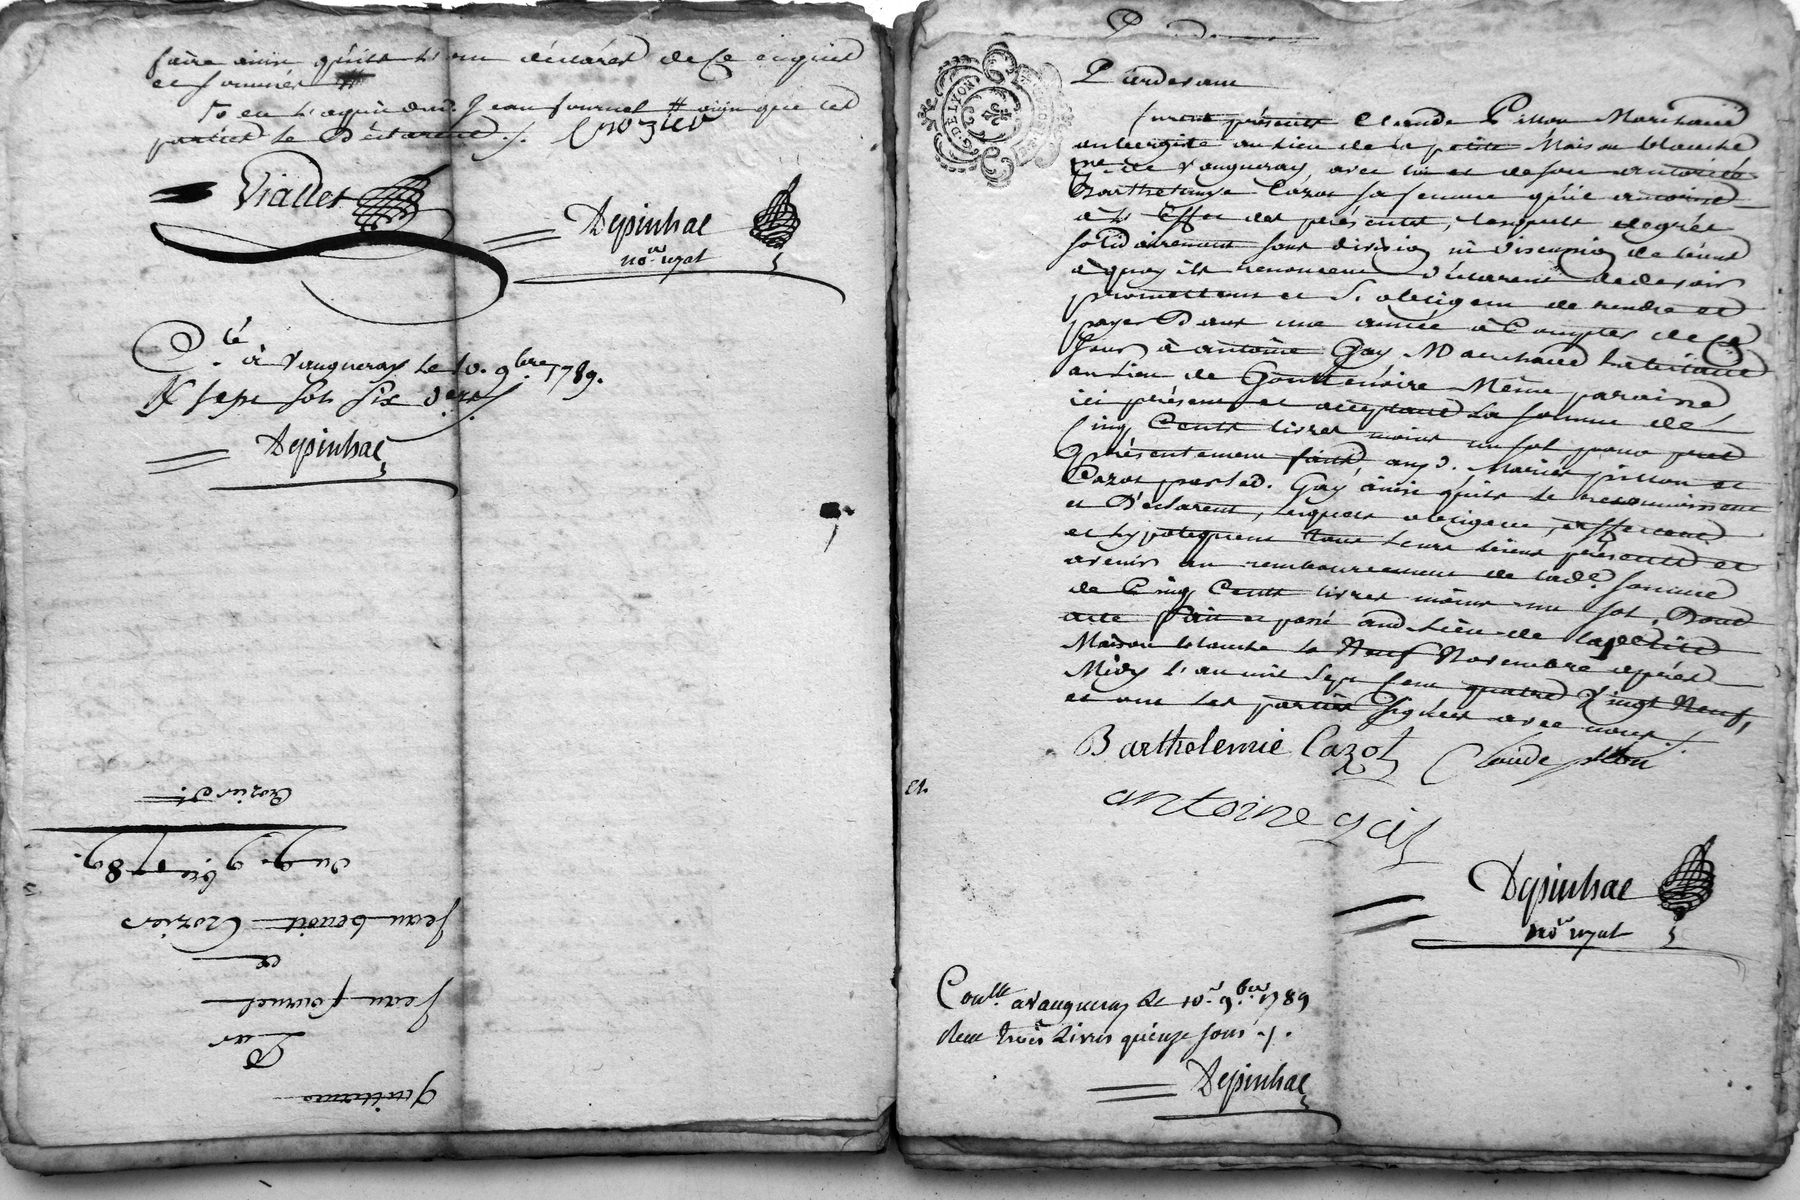 faire ainsi qu'ils l'ont déclaré de ce enquis
et sommés #
# en l'acquit dud. Jean fournel # ainsi que les
parties le Déclarent ./. Crozier
Viallet
Depinhac
no.re royal
C.lé
à Vaugneray le 10. 9bre 1789.
R sept sols six d.ers
Depinhac
quittance
Par
Jean fournel
a
Jean benoit Crozier
du 9. 9bre 1789.
Crozier
Pardevant
G. DE LYON
furent présents Claude Pillon Marchand
aubergiste au lieu de la petite Maison blanche
p.sse de Vaugneray, avec lui et de son autorité
Barthelemie Cazot sa femme qu'il autorise
à l'effet des présentes, lesquels de gré et
solidairement sans division ni discussion de biens
à quoy ils renoncent déclarent devoir
promettent et s'obligent de rendre et
payer Dans une année à Compter de ce
Jour à antoine Gay Marchand
au lieu de Gouttenoire Même paroisse
ici présent et acceptant la somme de
Cinq Cents livres moins un sol pour prêt
présentement fait auxd. Mariés pillon et
Cazot par led. Gay ainsi qu'ils le reconnoissent
et Déclarent, lesquels obligent, affectent
et hypotequent tous leurs biens présents et
avenir au remboursement de lad.e somme
de Cinq Cents livres moins un sol, Dont
acte fait et passé aud. lieu de la petite
Maison blanche le Neuf Novembre après
Midy l'an mil sept cent quatre Vingt Neuf,
et ont les parties signées avec nous ./.
Barthelemie Cazot Claude pillon
antoine gay
Depinhac
no.re royal
Con.llé a Vaugneray le 10.e 9.bre 1789
Reçu trois Livres quinze sous ./.
Depinhac